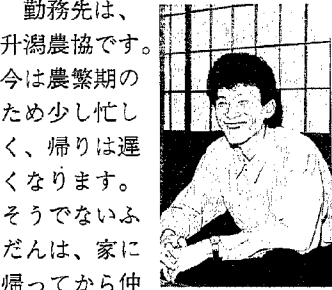 勤務先は、
升潟農協です。
今は農繁期の
ため少し忙し
く、帰りは遅
くなります。
そうでないふ
だんは、家に
帰ってから仲